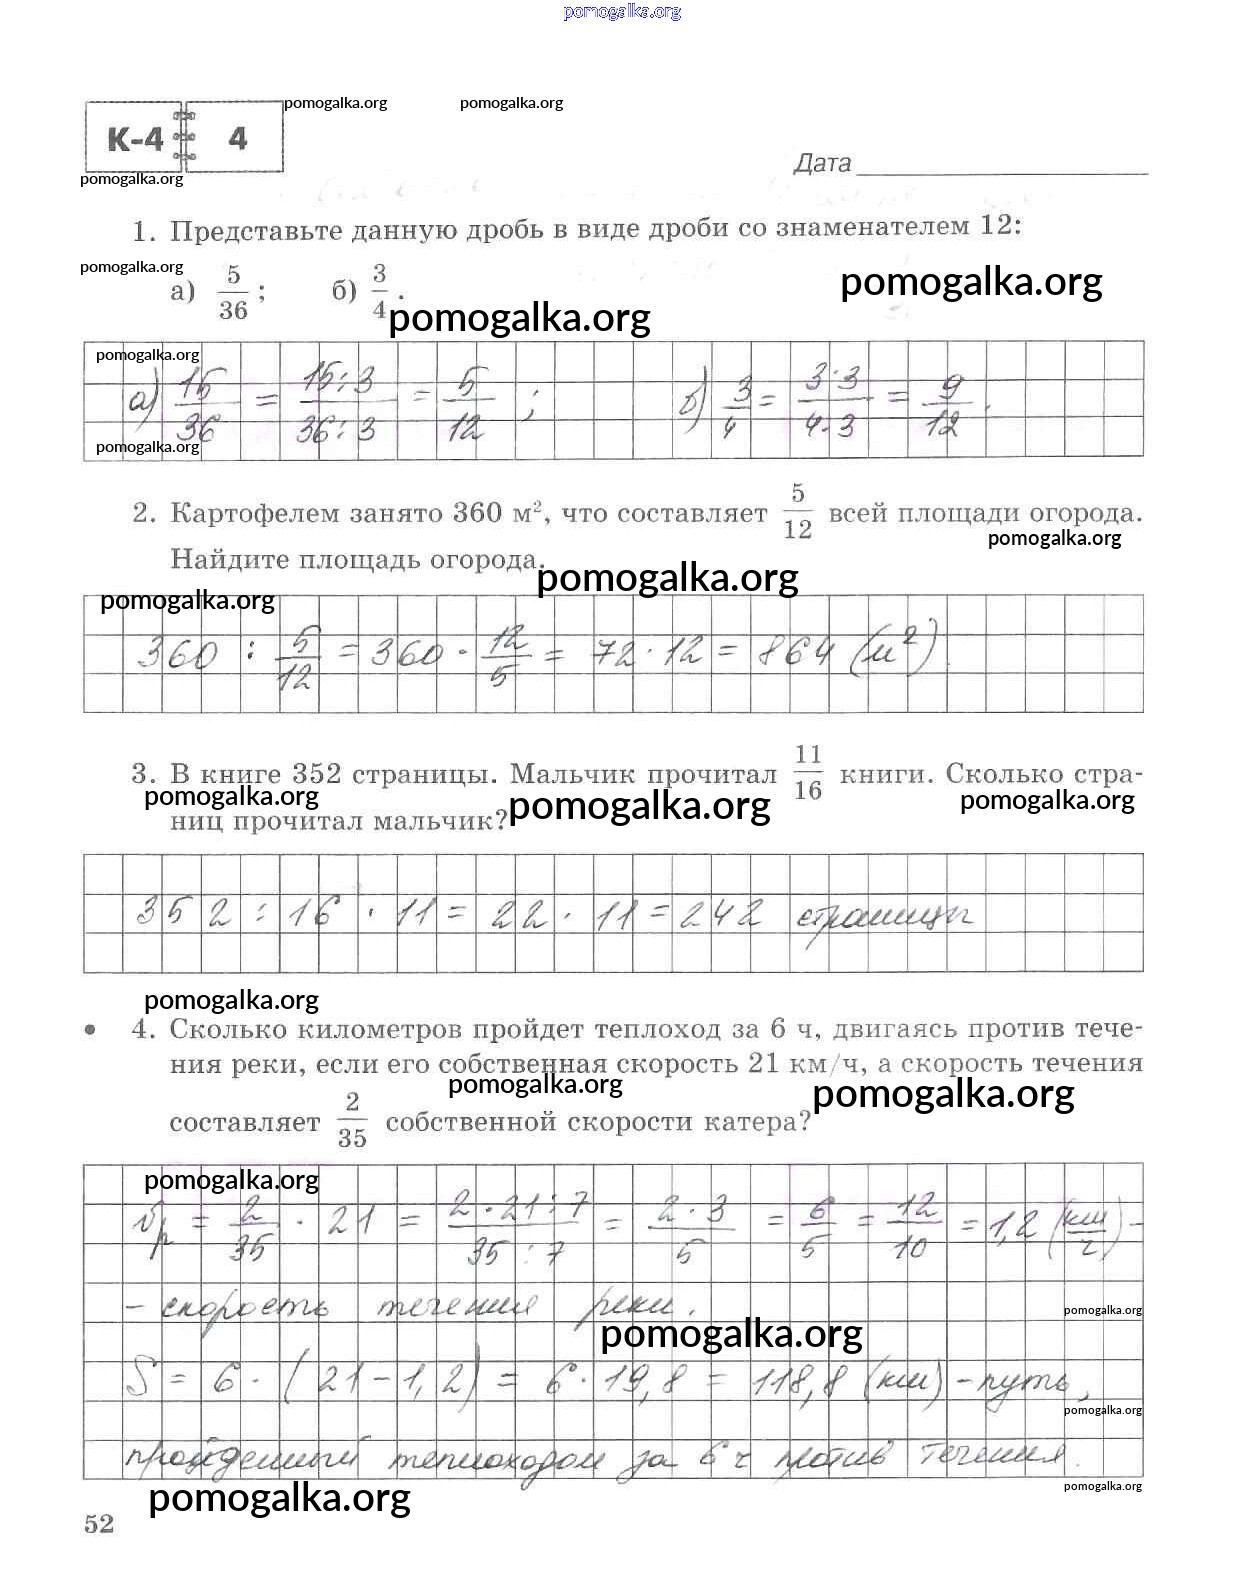 pomogalka.org
pomogalka.org pomogalka.org
К-4 4
Дата
pomogalka.org
1. Представьте данную дробь в виде дроби со знаменателем 12:
pomogalka.org
а) 5/36 ; б) 3/4 .
pomogalka.org
pomogalka.org
pomogalka.org
а) 15/36 = 15:3/36:3 = 5/12 ; б) 3/4 = 3·3/4·3 = 9/12 .
pomogalka.org
2. Картофелем занято 360 м², что составляет 5/12 всей площади огорода.
pomogalka.org
Найдите площадь огорода.
pomogalka.org
pomogalka.org
360 : 5/12 = 360 · 12/5 = 72 · 12 = 864 (м²)
3. В книге 352 страницы. Мальчик прочитал 11/16 книги. Сколько стра-
pomogalka.org pomogalka.org pomogalka.org
ниц прочитал мальчик?
352 : 16 · 11 = 22 · 11 = 242 страницы
pomogalka.org
• 4. Сколько километров пройдет теплоход за 6 ч, двигаясь против тече-
ния реки, если его собственная скорость 21 км/ч, а скорость течения
pomogalka.org pomogalka.org
составляет 2/35 собственной скорости катера?
pomogalka.org
vр = 2/35 · 21 = 2·21:7/35:7 = 2·3/5 = 6/5 = 12/10 = 1,2 (км/ч) –
– скорость течения реки.
pomogalka.org
pomogalka.org
S = 6 · (21 – 1,2) = 6 · 19,8 = 118,8 (км) – путь,
pomogalka.org
пройденный теплоходом за 6 ч против течения.
pomogalka.org
pomogalka.org
52